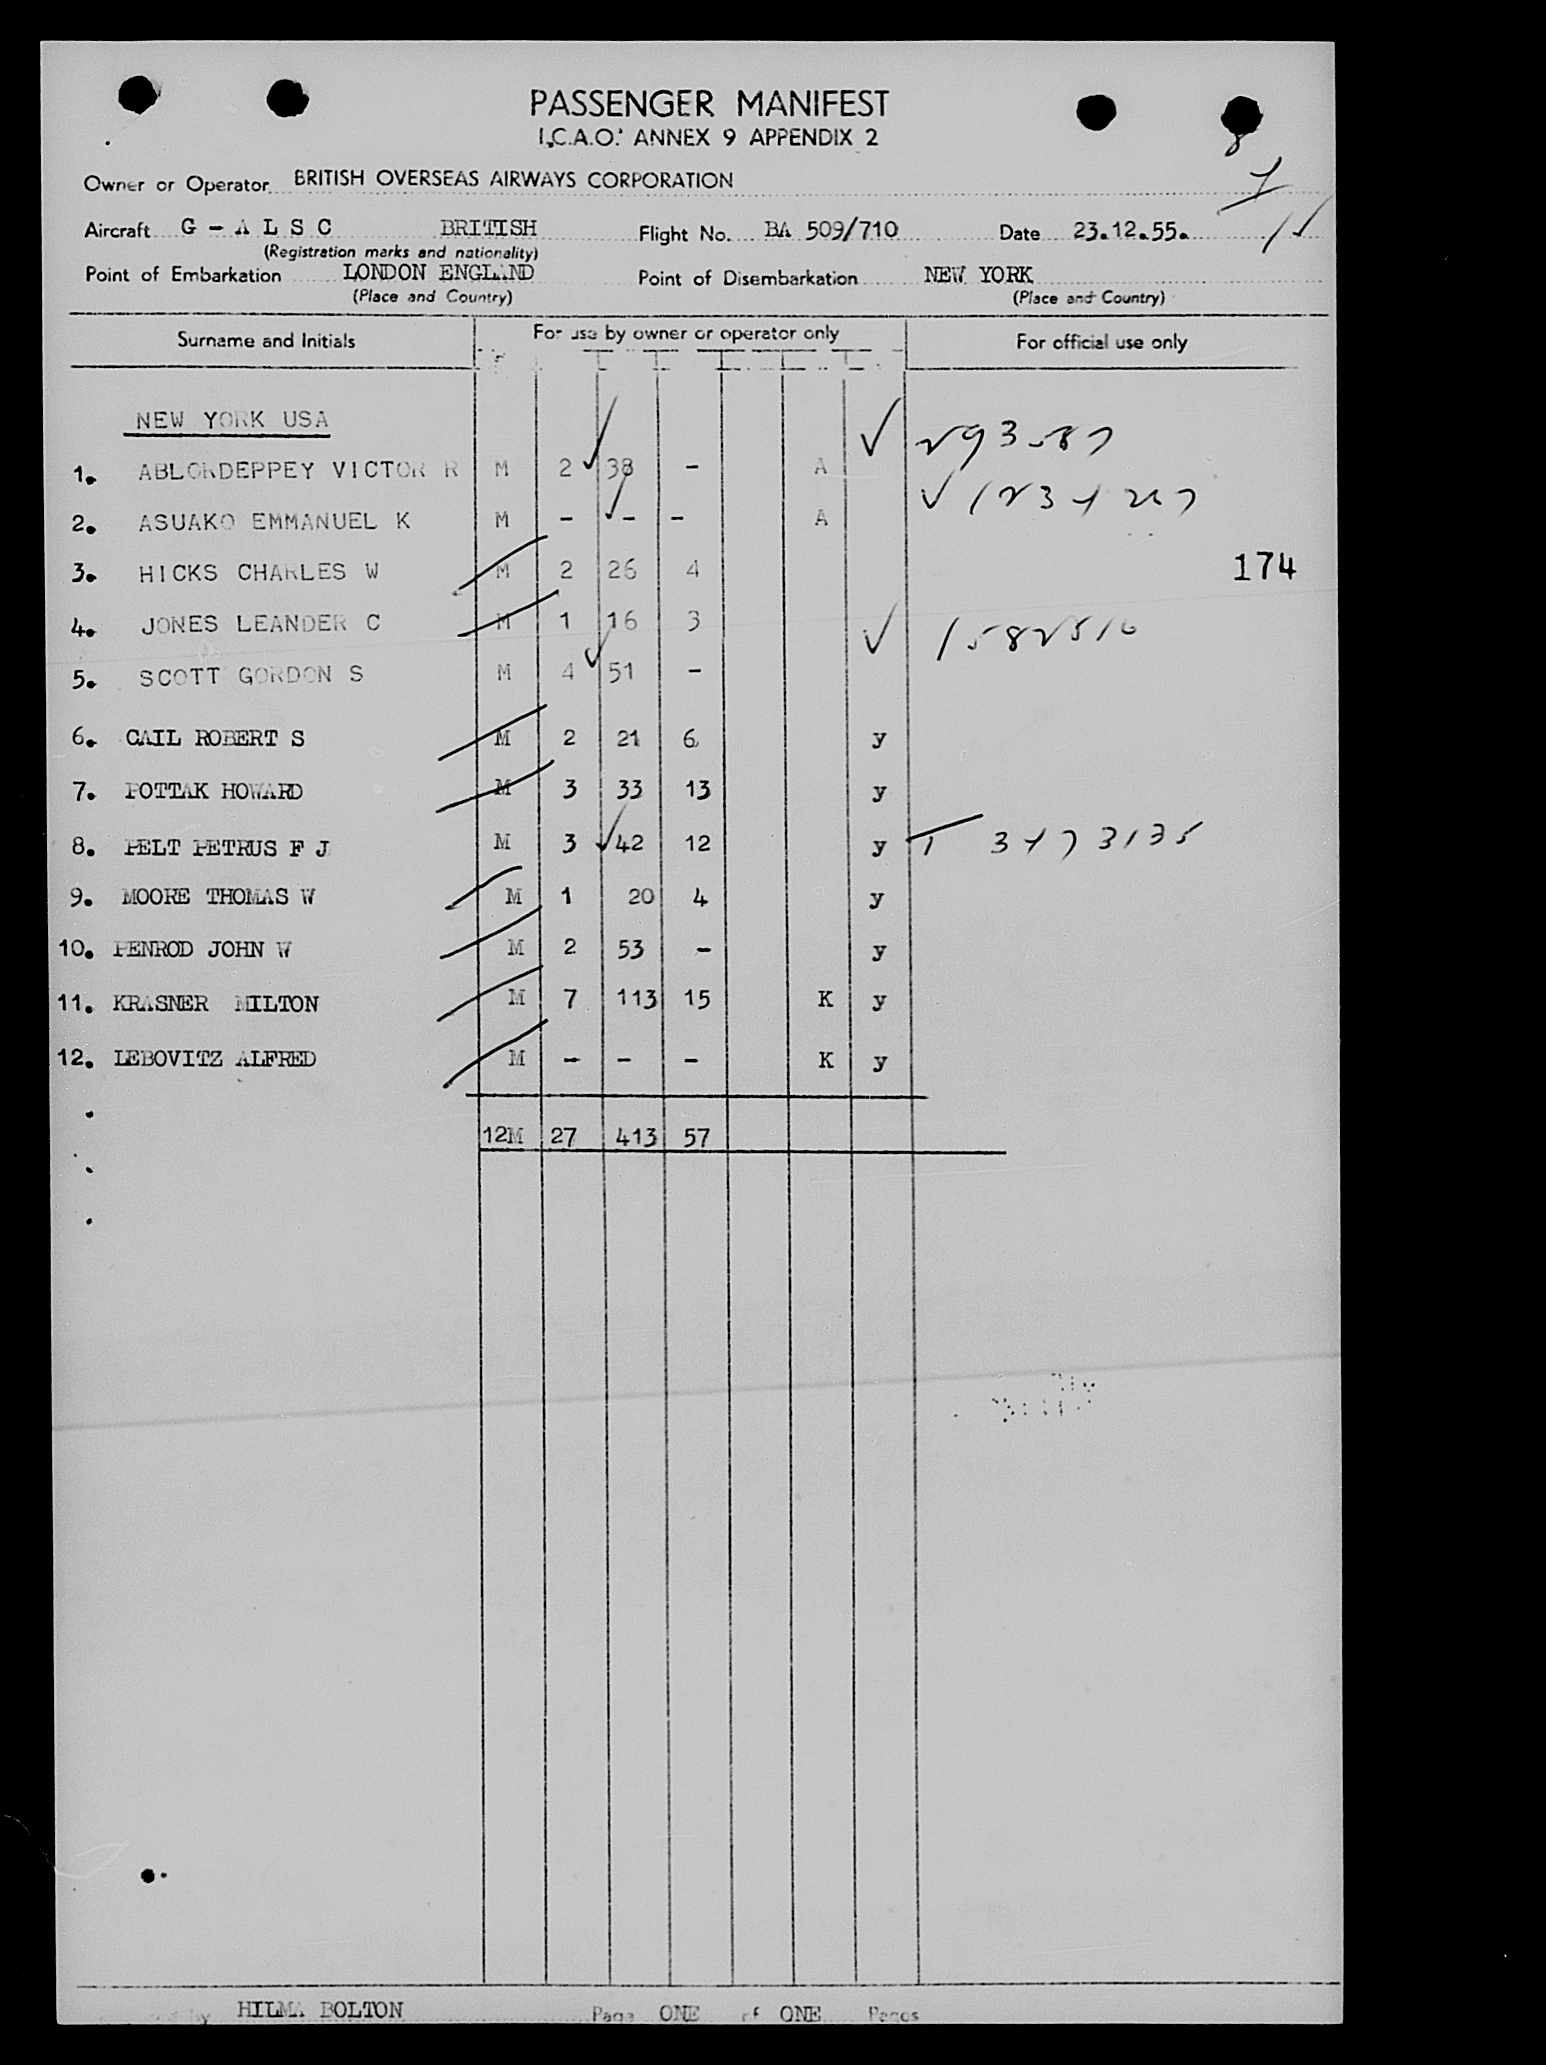 PASSENGER MANIFEST
I.C.A.O. ANNEX 9 APPENDIX 2
Owner or Operator BRITISH OVERSEAS AIRWAYS CORPORATION
Aircraft G - A L S C BRITISH Flight No. BA 509/710 Date 23.12.55.
(Registration marks and nationality)
Point of Embarkation LONDON ENGLAND Point of Disembarkation NEW YORK
(Place and Country) (Place and Country)
Surname and Initials For use by owner or operator only For official use only
NEW YORK USA
1. ABLORDEPPEY VICTOR R M 2 38 - A
2. ASUAKO EMMANUEL K M - - - A
3. HICKS CHARLES W M 2 26 4 174
4. JONES LEANDER C M 1 16 3
5. SCOTT GORDON S M 4 51 -
6. CAIL ROBERT S M 2 21 6 y
7. POTTAK HOWARD M 3 33 13 y
8. PELT PETRUS F J M 3 42 12 y
9. MOORE THOMAS W M 1 20 4 y
10. PENROD JOHN W M 2 53 - y
11. KRASNER MILTON M 7 113 15 K y
12. LEBOVITZ ALFRED M - - - K y
12M 27 413 57
by HILMA BOLTON Page ONE of ONE Pages